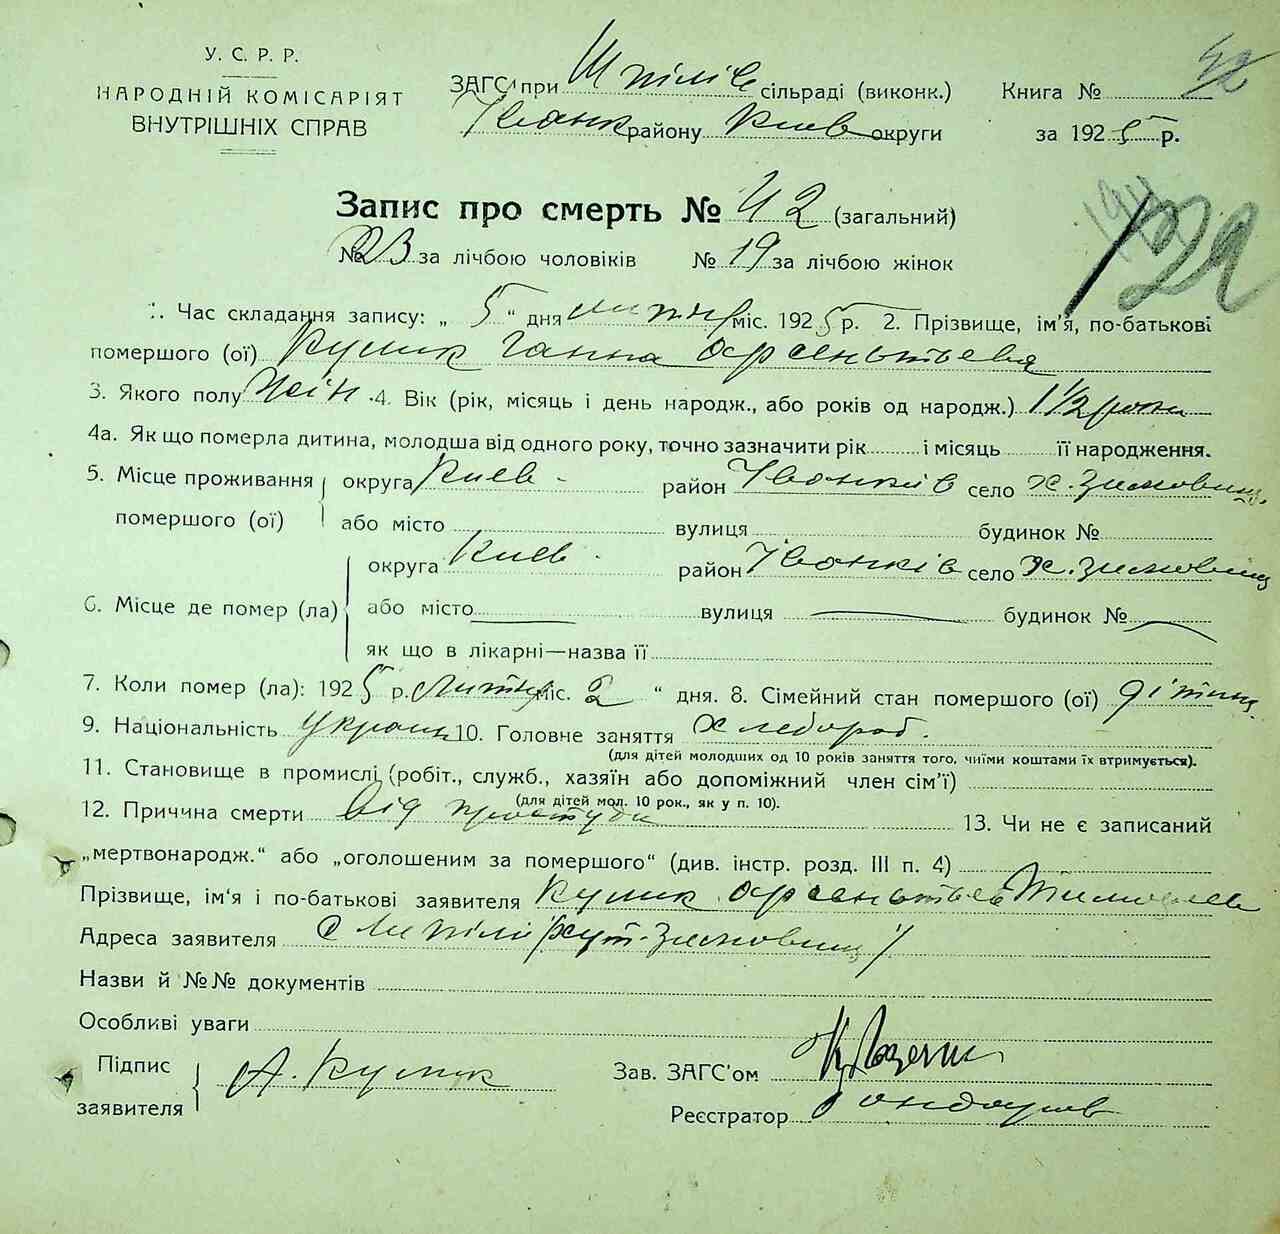 У. С. Р. Р.
НАРОДНІЙ КОМІСАРІЯТ
ВНУТРІШНІХ СПРАВ
ЗАГС при Шпілів сільраді (виконк.)
Іванк району Киев округи
Книга №
за 1925 р.
Запис про смерть № 42 (загальний)
№ 23 за лічбою чоловіків № 19 за лічбою жінок
1. Час складання запису: „ 5 “ дня липня міс. 1925 р. 2. Прізвище, ім'я, по-батькові
помершого (ої) Кулик Ганна Арсеньтьевна
3. Якого полу жін. 4. Вік (рік, місяць і день народж., або років од народж.) 1 1/2 роки
4а. Як що померла дитина, молодша від одного року, точно зазначити рік і місяць її народження.
5. Місце проживання помершого (ої) округа Киев - район Іванків село х. Зимовище
або місто вулиця будинок №
округа Киев - район Іванків село х. Зимовищ
6. Місце де помер (ла) або місто вулиця будинок №
як що в лікарні—назва її
7. Коли помер (ла): 1925 р. Липня міс. 2 “ дня. 8. Сімейний стан помершого (ої) дітина
9. Національність украин 10. Головне заняття Хлебороб.
(для дітей молодших од 10 років заняття того, чиїми коштами їх втримується).
11. Становище в промислі (робіт., служб., хазяїн або допоміжний член сім'ї)
(для дітей мол. 10 рок., як у п. 10).
12. Причина смерти від простуди 13. Чи не є записаний
„мертвонародж.“ або „оголошеним за помершого“ (див. інстр. розд. III п. 4)
Прізвище, ім'я і по-батькові заявителя Кулик Арсентьев Тимофеев
Адреса заявителя с Шпілі (хут. Зимовищ)
Назви й №№ документів
Особливі уваги
Підпис заявителя А. Кулик
Зав. ЗАГС'ом
Реєстратор